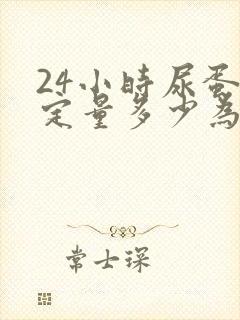 24小時尿蛋
定量多少為
常士琛